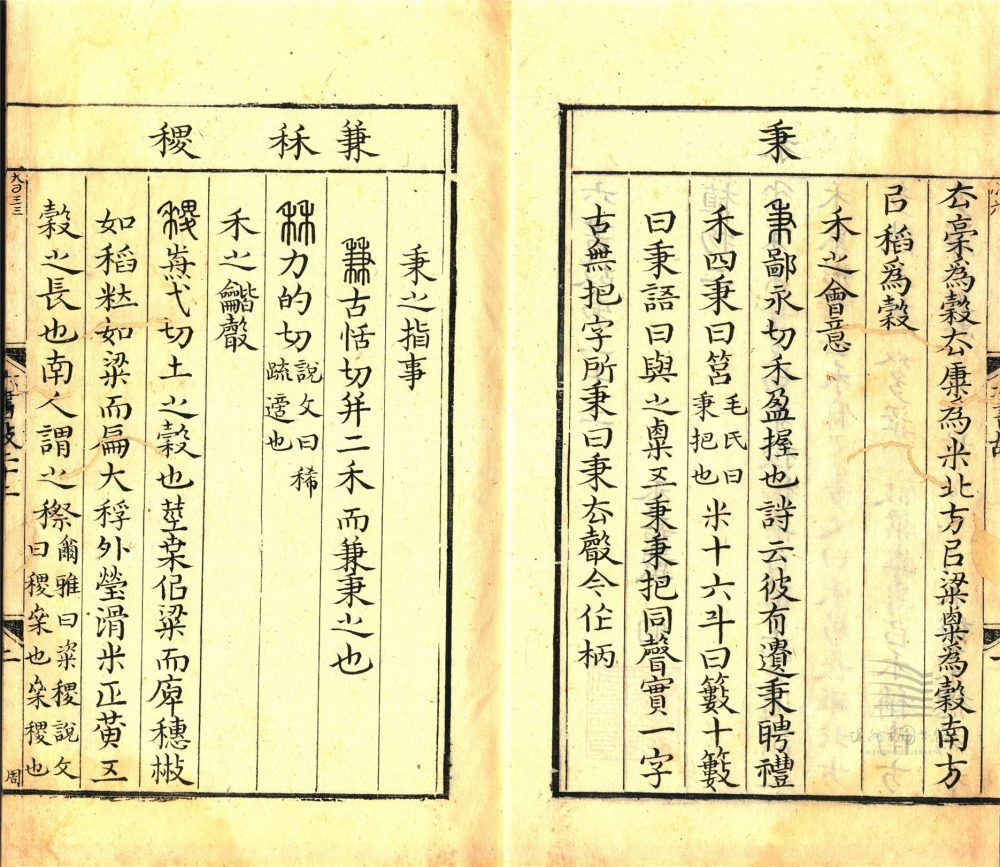 秉
厺稾爲穀厺康為米北方㠯粱粟爲穀南方
㠯稻爲穀
禾之會意
秉鄙永切禾盈握也詩云彼有遺秉聘禮
禾四秉曰筥毛氏曰秉把也米十六斗曰籔十籔
曰秉語曰與之粟㐅秉秉把同聲實一字
古無把字所秉曰秉厺聲今作柄
兼 秝 稷
秉之指事
兼古恬切并二禾而兼秉之也
秝力的切說文曰稀疏適也
禾之龤聲
稷弋切土之穀也莖葉佀粱而庳穗㪔
如稻粒如粱而扁大稃外瑩滑米正黃㐅
穀之長也南人謂之穄爾雅曰粢稷說文曰稷也稷也
二
周